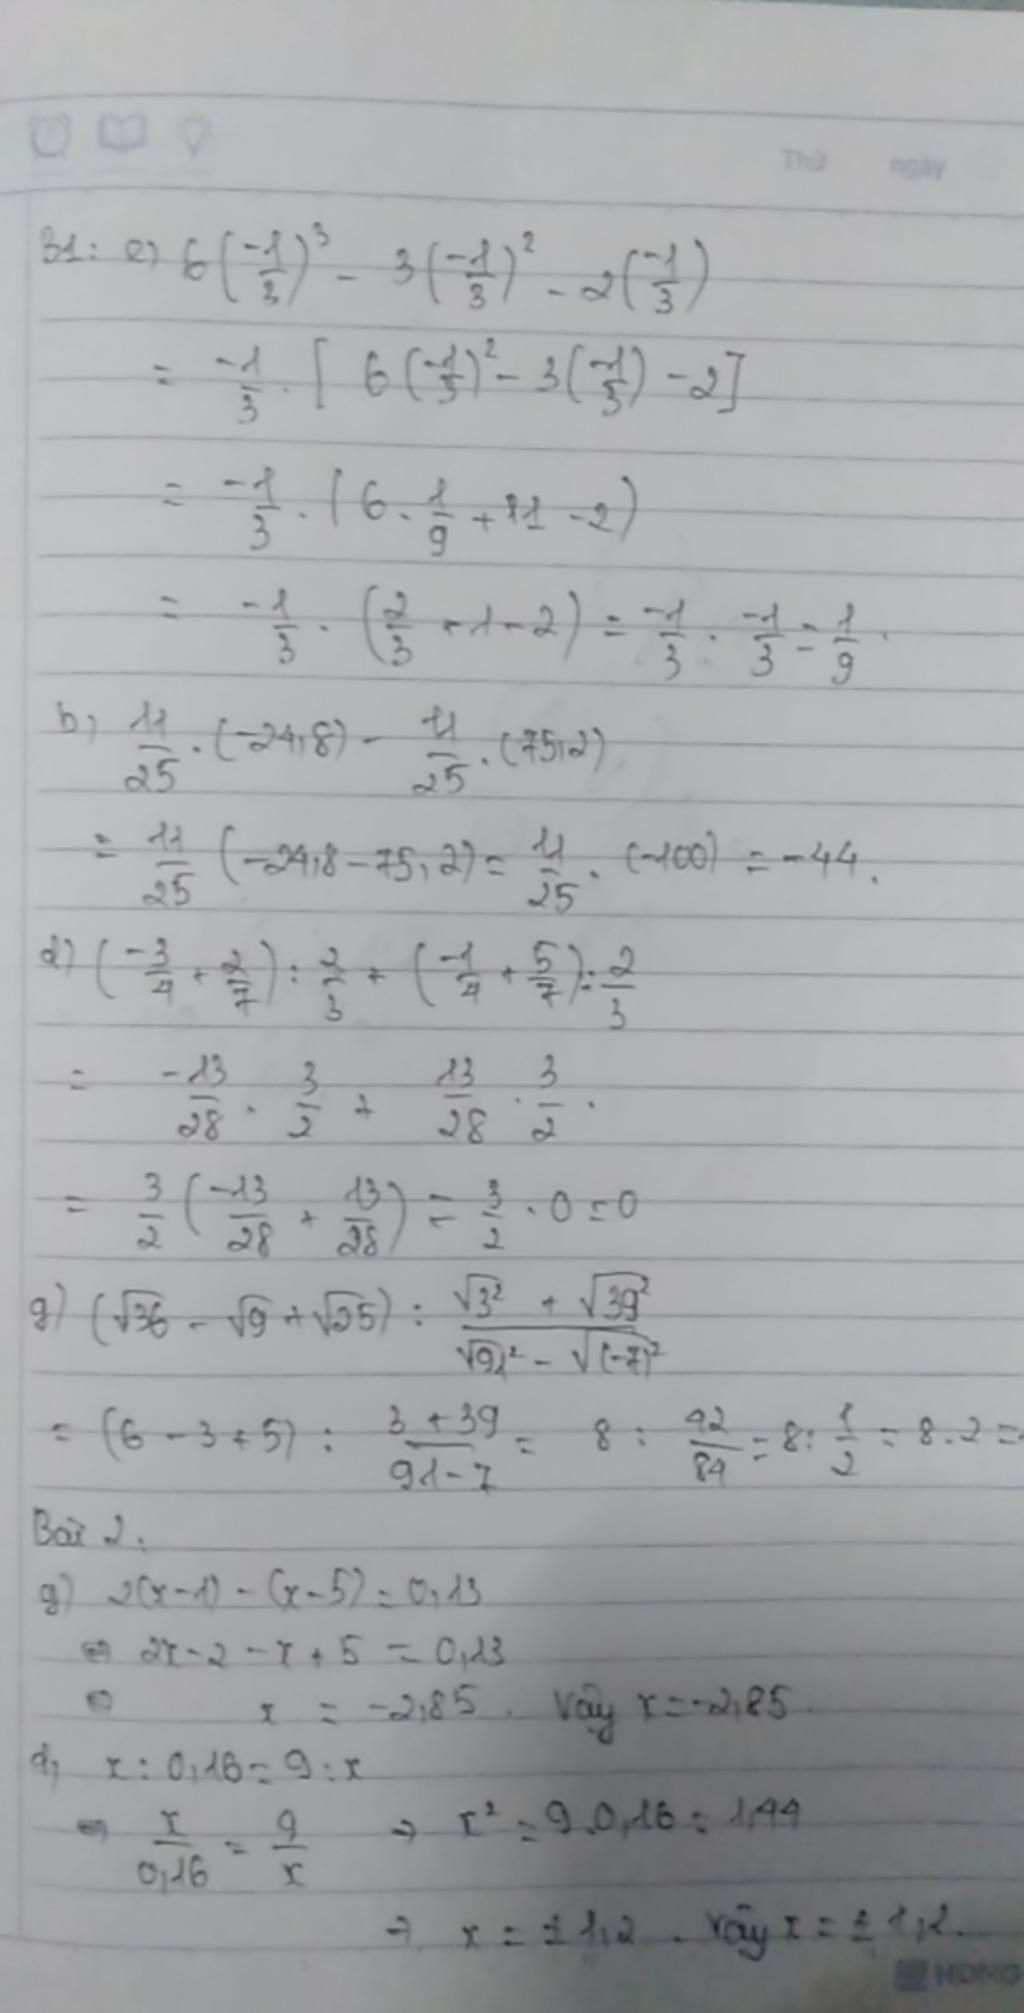 Thứ ngày
B1: e) 6(-1/3)³ - 3(-1/3)² - 2(-1/3)
= -1/3 . [6(-1/3)² - 3(-1/3) - 2]
= -1/3 . (6 . 1/9 + 1 - 2)
= -1/3 . (2/3 + 1 - 2) = -1/3 . -1/3 = 1/9 .
b) 11/25 . (-24,8) - 11/25 . (75,2)
= 11/25 (-24,8 - 75,2) = 11/25 . (-100) = -44.
d) (-3/4 + 2/7) : 2/3 + (-1/4 + 5/7) : 2/3
= -13/28 . 3/2 + 13/28 . 3/2 .
= 3/2 (-13/28 + 13/28) = 3/2 . 0 = 0
g) (√36 - √9 + √25) : (√3² + √39²)/(√91² - √(-7)²)
= (6 - 3 + 5) : (3 + 39)/(91 - 7) = 8 : 42/84 = 8 : 1/2 = 8 . 2 =
Bài 2.
g) 2(x - 1) - (x - 5) = 0,13
⇔ 2x - 2 - x + 5 = 0,13
⇔ x = -2,85 . Vậy x = -2,85.
d, x : 0,16 = 9 : x
⇔ x/0,16 = 9/x → x² = 9.0,16 = 1,44
→ x = ±1,2 . Vậy x = ±1,2.
HONG